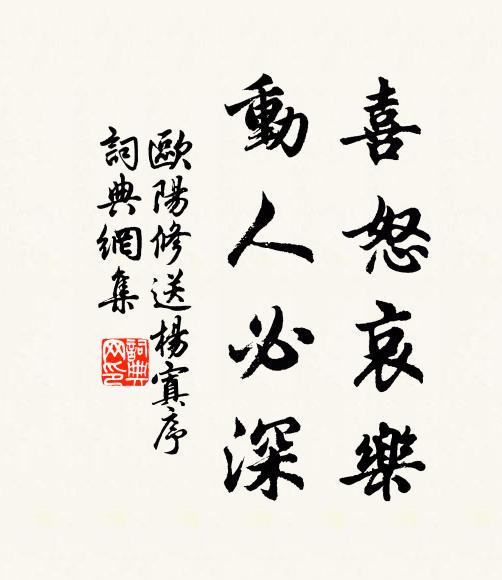 喜怒哀樂
動人必深
歐陽修送楊寘序
詞典網集
詞典网印